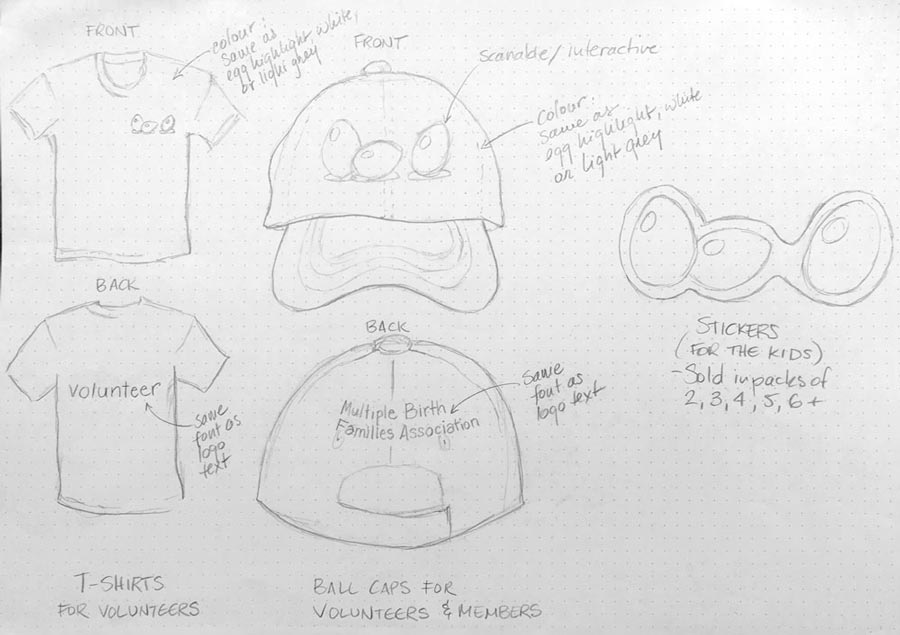 FRONT
colour:
same as
egg highlight, white,
or light grey
BACK
Volunteer
same
font as
logo
text
T-SHIRTS
FOR VOLUNTEERS
FRONT
scanable/interactive
colour:
same as
egg highlight, white
or light grey
BACK
Multiple Birth
Families Association
same
font as
logo text
BALL CAPS FOR
VOLUNTEERS & MEMBERS
STICKERS
(FOR THE KIDS)
-Sold in packs of
2, 3, 4, 5, 6+